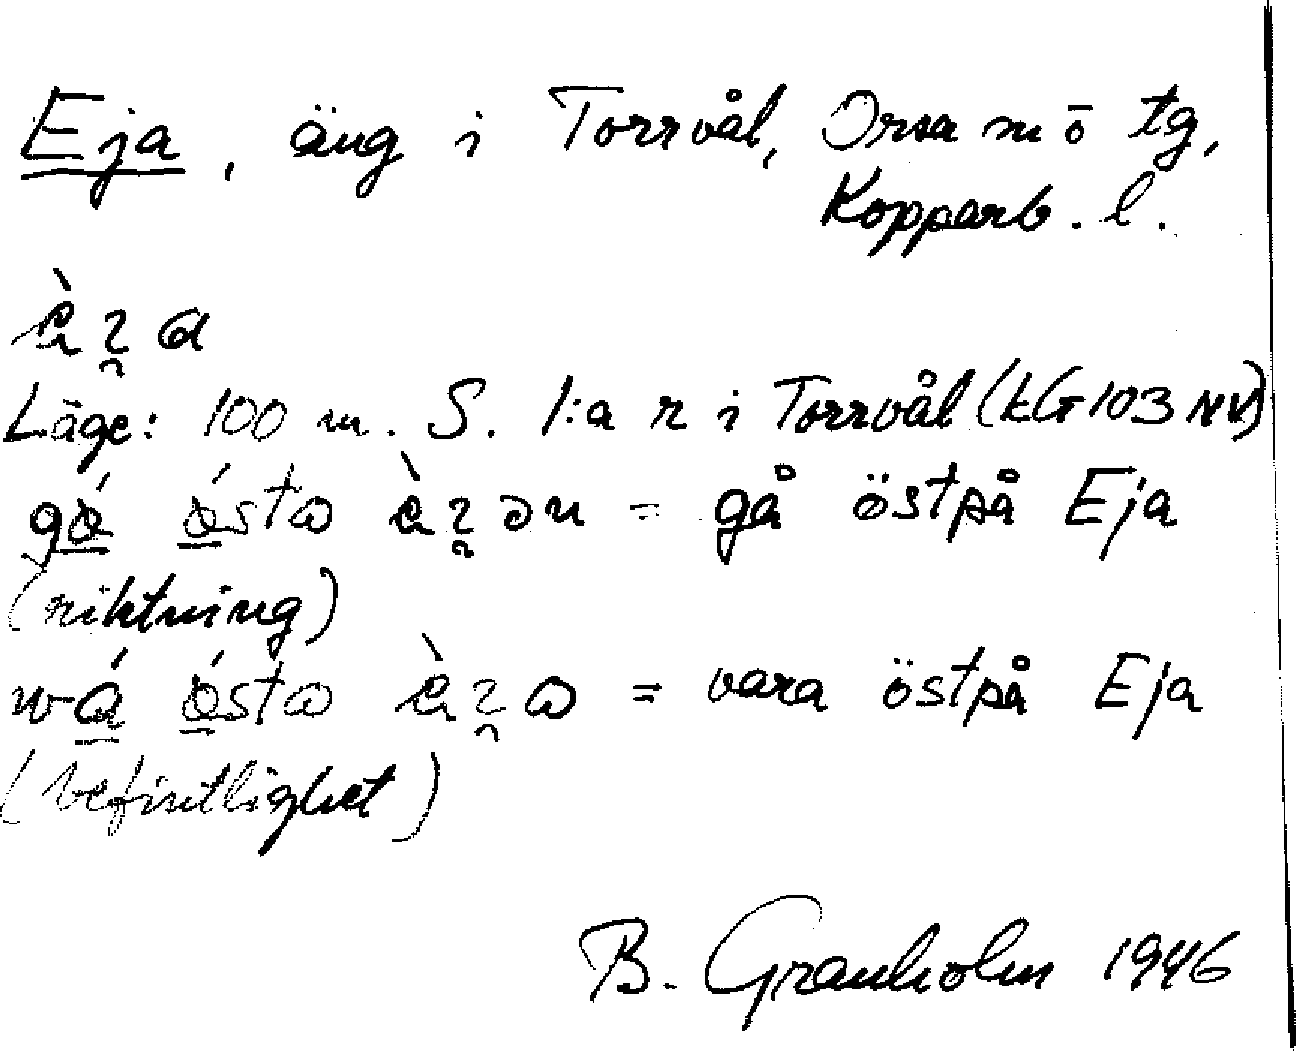 Eja, äng i Torrvål, Orsa m ö tg,
Kopparb. l.
Läge: 100 m. S. 1:a r i Torrvål (kG103 NV)
= gå östpå Eja
(riktning)
= vara östpå Eja
(befintlighet)
B. Granholm 1946